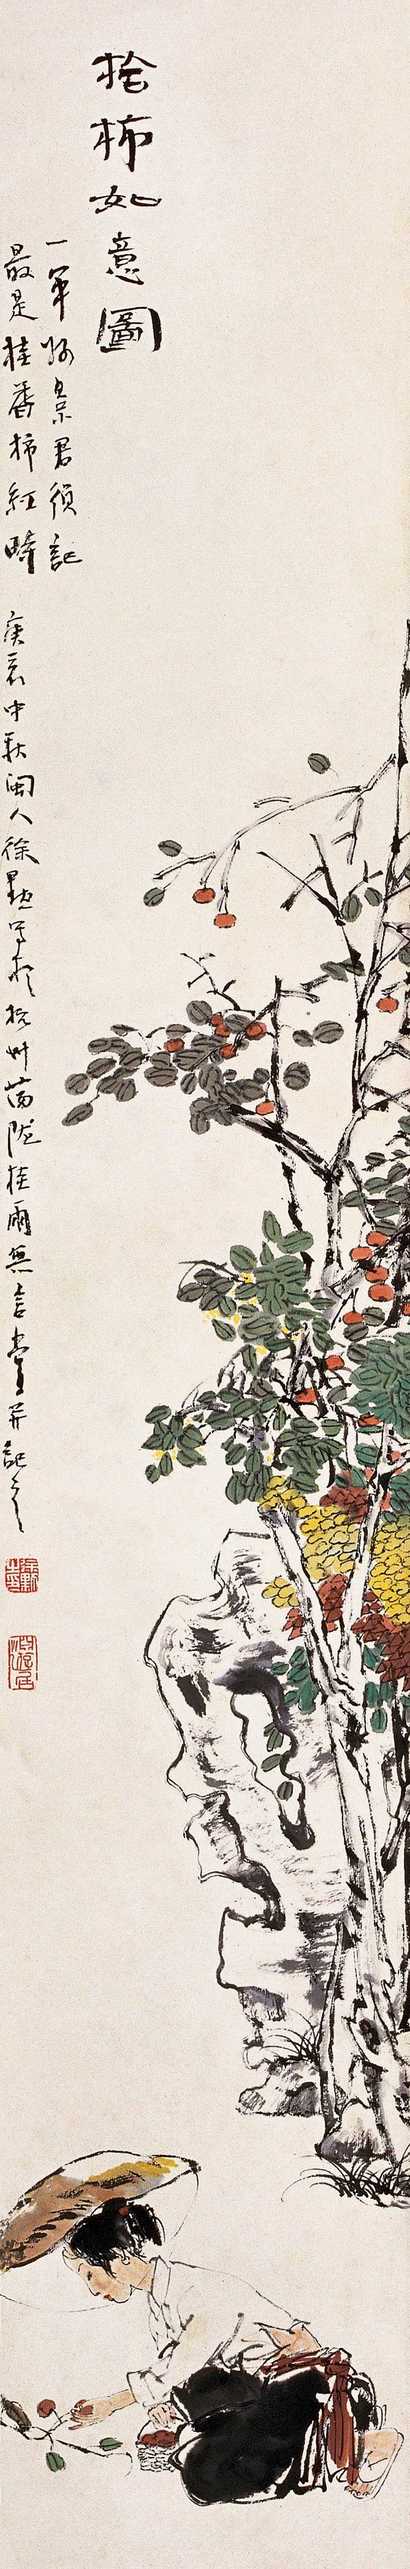 拾柿如意圖
一年好景君須記
最是桂香柿紅時 庚辰中秋閩人徐默寫於杭州滿隴桂雨無言堂并記之